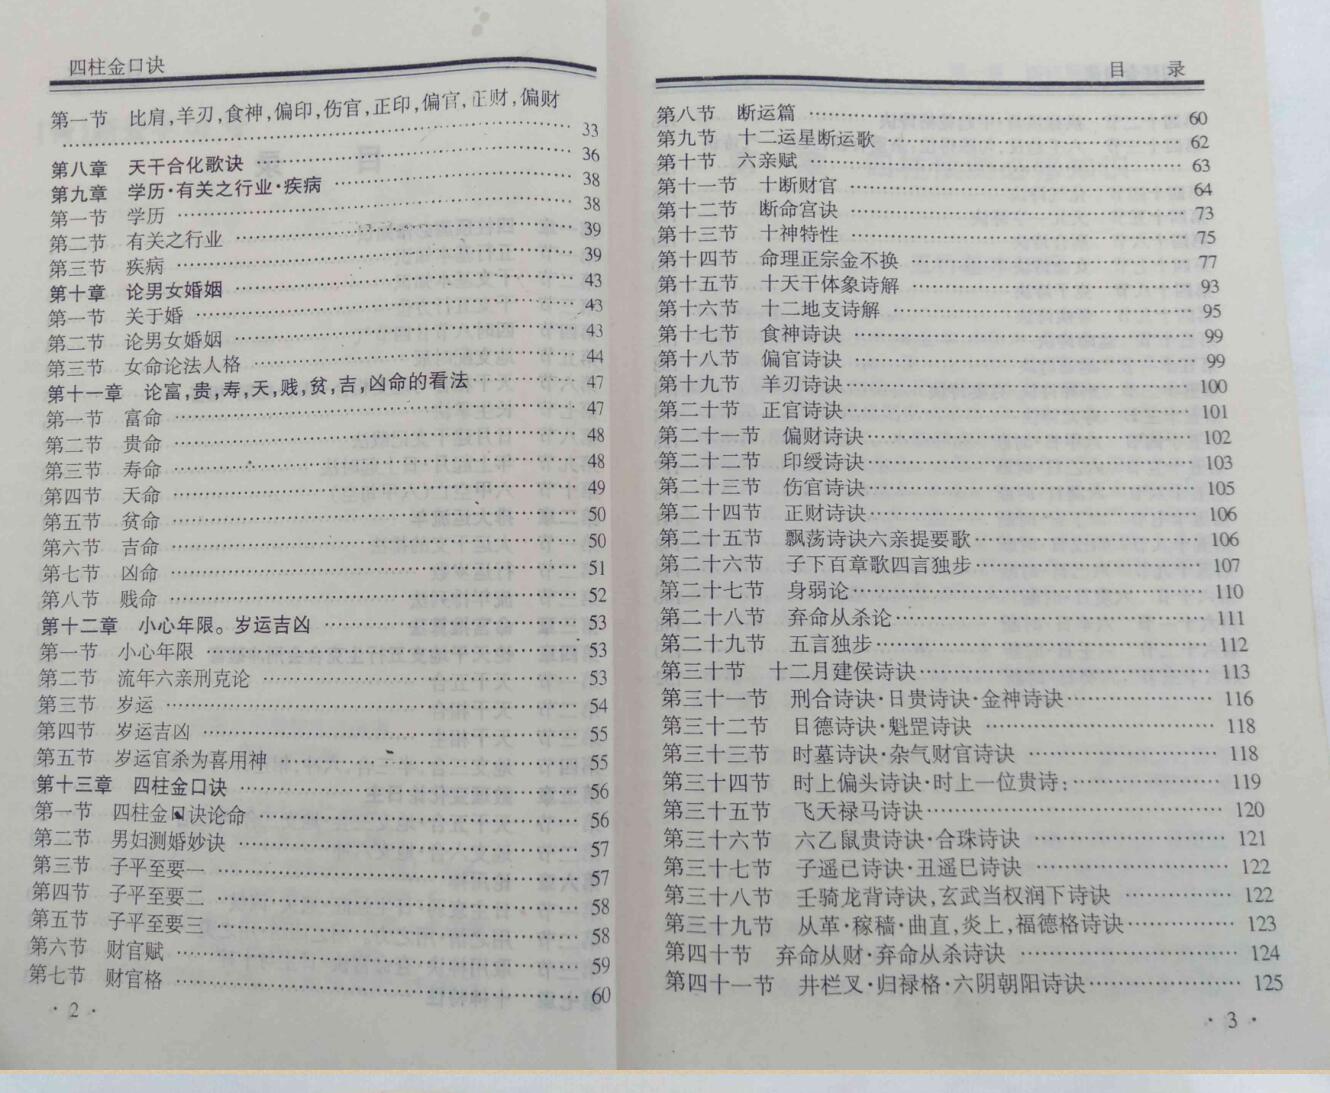 四柱金口诀
第一节 比肩,羊刃,食神,偏印,伤官,正印,偏官,正财,偏财
……………………………………………… 33
第八章 天干合化歌诀 …………………… 36
第九章 学历·有关之行业·疾病 …………… 38
第一节 学历 …………………………… 38
第二节 有关之行业 …………………… 39
第三节 疾病 …………………………… 39
第十章 论男女婚姻 …………………… 43
第一节 关于婚 ………………………… 43
第二节 论男女婚姻 …………………… 43
第三节 女命论法人格 ………………… 44
第十一章 论富,贵,寿,夭,贱,贫,吉,凶命的看法 …… 47
第一节 富命 …………………………… 47
第二节 贵命 …………………………… 48
第三节 寿命 …………………………… 48
第四节 夭命 …………………………… 49
第五节 贫命 …………………………… 50
第六节 吉命 …………………………… 50
第七节 凶命 …………………………… 51
第八节 贱命 …………………………… 52
第十二章 小心年限。岁运吉凶 ………… 53
第一节 小心年限 ……………………… 53
第二节 流年六亲刑克论 ……………… 53
第三节 岁运 …………………………… 54
第四节 岁运吉凶 ……………………… 55
第五节 岁运官杀为喜用神 …………… 55
第十三章 四柱金口诀 ………………… 56
第一节 四柱金口诀论命 ……………… 56
第二节 男妇测婚妙诀 ………………… 57
第三节 子平至要一 …………………… 57
第四节 子平至要二 …………………… 58
第五节 子平至要三 …………………… 58
第六节 财官赋 ………………………… 59
第七节 财官格 ………………………… 60
· 2 ·
目 录
第八节 断运篇 ………………………… 60
第九节 十二运星断运歌 ……………… 62
第十节 六亲赋 ………………………… 63
第十一节 十断财官 …………………… 64
第十二节 断命宫诀 …………………… 73
第十三节 十神特性 …………………… 75
第十四节 命理正宗金不换 …………… 77
第十五节 十天干体象诗解 …………… 93
第十六节 十二地支诗解 ……………… 95
第十七节 食神诗诀 …………………… 99
第十八节 偏官诗诀 …………………… 99
第十九节 羊刃诗诀 …………………… 100
第二十节 正官诗诀 …………………… 101
第二十一节 偏财诗诀 ………………… 102
第二十二节 印绶诗诀 ………………… 103
第二十三节 伤官诗诀 ………………… 105
第二十四节 正财诗诀 ………………… 106
第二十五节 飘荡诗诀六亲提要歌 …… 106
第二十六节 子下百章歌四言独步 …… 107
第二十七节 身弱论 …………………… 110
第二十八节 弃命从杀论 ……………… 111
第二十九节 五言独步 ………………… 112
第三十节 十二月建侯诗诀 …………… 113
第三十一节 刑合诗诀·日贵诗诀·金神诗诀 …… 116
第三十二节 日德诗诀·魁罡诗诀 …… 118
第三十三节 时墓诗诀·杂气财官诗诀 …… 118
第三十四节 时上偏头诗诀·时上一位贵诗: …… 119
第三十五节 飞天禄马诗诀 …………… 120
第三十六节 六乙鼠贵诗诀·合珠诗诀 …… 121
第三十七节 子遥巳诗诀·丑遥巳诗诀 …… 122
第三十八节 壬骑龙背诗诀,玄武当权润下诗诀 …… 122
第三十九节 从革·稼穑·曲直,炎上,福德格诗诀 …… 123
第四十节 弃命从财·弃命从杀诗诀 …… 124
第四十一节 井栏叉·归禄格·六阴朝阳诗诀 …… 125
· 3 ·